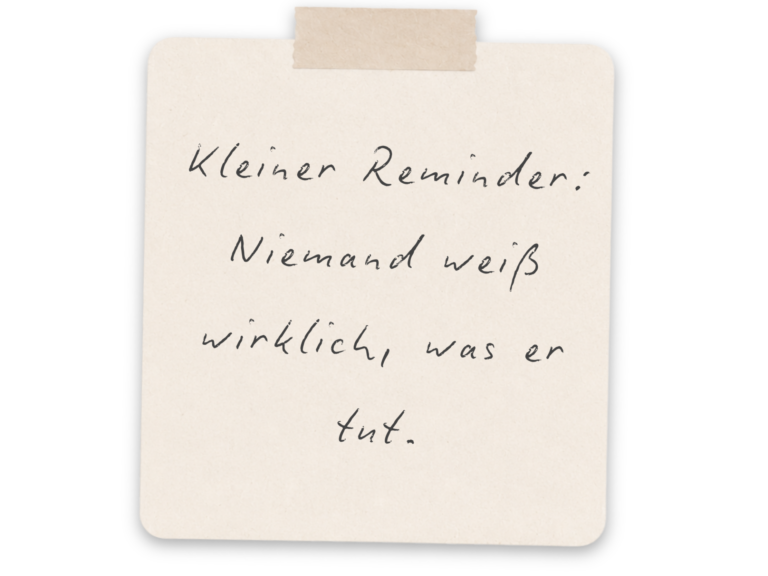 Kleiner Reminder:
Niemand weiß
wirklich, was er
tut.